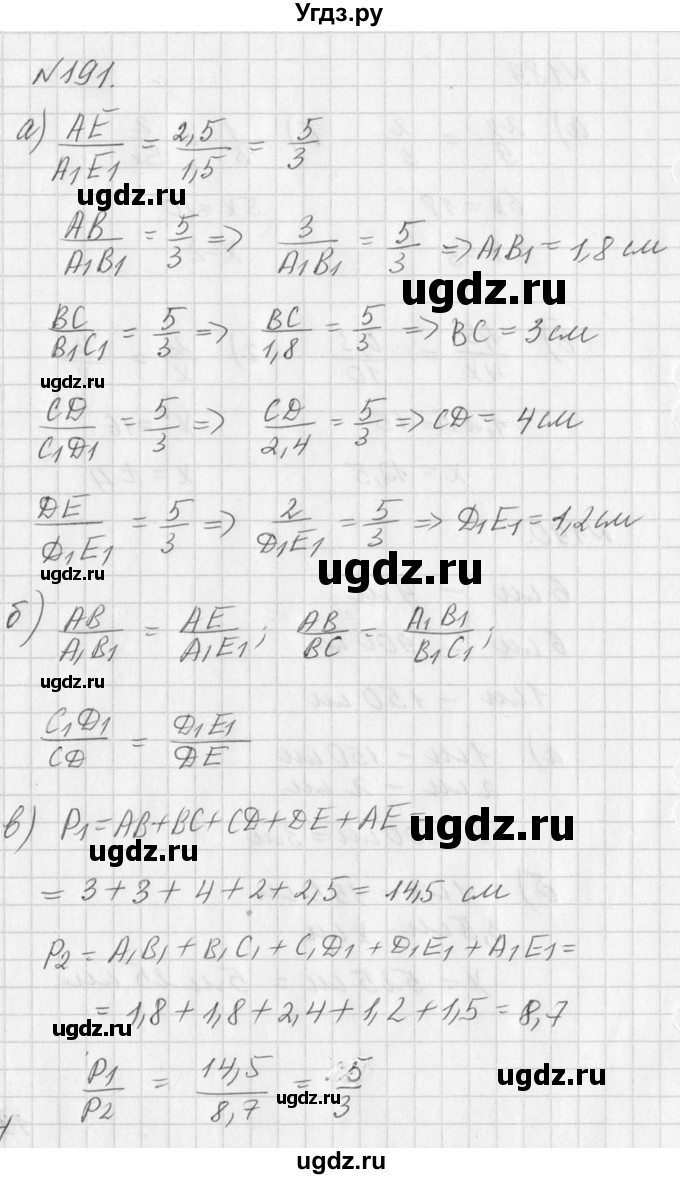 Угдз.ру
№191.
а) AE/A1E1 = 2,5/1,5 = 5/3
ugdz.ru
AB/A1B1 = 5/3 => 3/A1B1 = 5/3 => A1B1 = 1,8 см
ugdz.ru
BC/B1C1 = 5/3 => BC/1,8 = 5/3 => BC = 3 см
ugdz.ru
CD/C1D1 = 5/3 => CD/2,4 = 5/3 => CD = 4 см
DE/D1E1 = 5/3 => 2/D1E1 = 5/3 => D1E1 = 1,2 см
ugdz.ru
б) AB/A1B1 = AE/A1E1; AB/BC = A1B1/B1C1;
ugdz.ru
C1D1/CD = D1E1/DE
в) P1 = AB + BC + CD + DE + AE =
ugdz.ru
ugdz.ru
= 3 + 3 + 4 + 2 + 2,5 = 14,5 см
P2 = A1B1 + B1C1 + C1D1 + D1E1 + A1E1 =
= 1,8 + 1,8 + 2,4 + 1,2 + 1,5 = 8,7
ugdz.ru
P1/P2 = 14,5/8,7 = 5/3
ugdz.ru
ugdz.ru
ugdz.ru